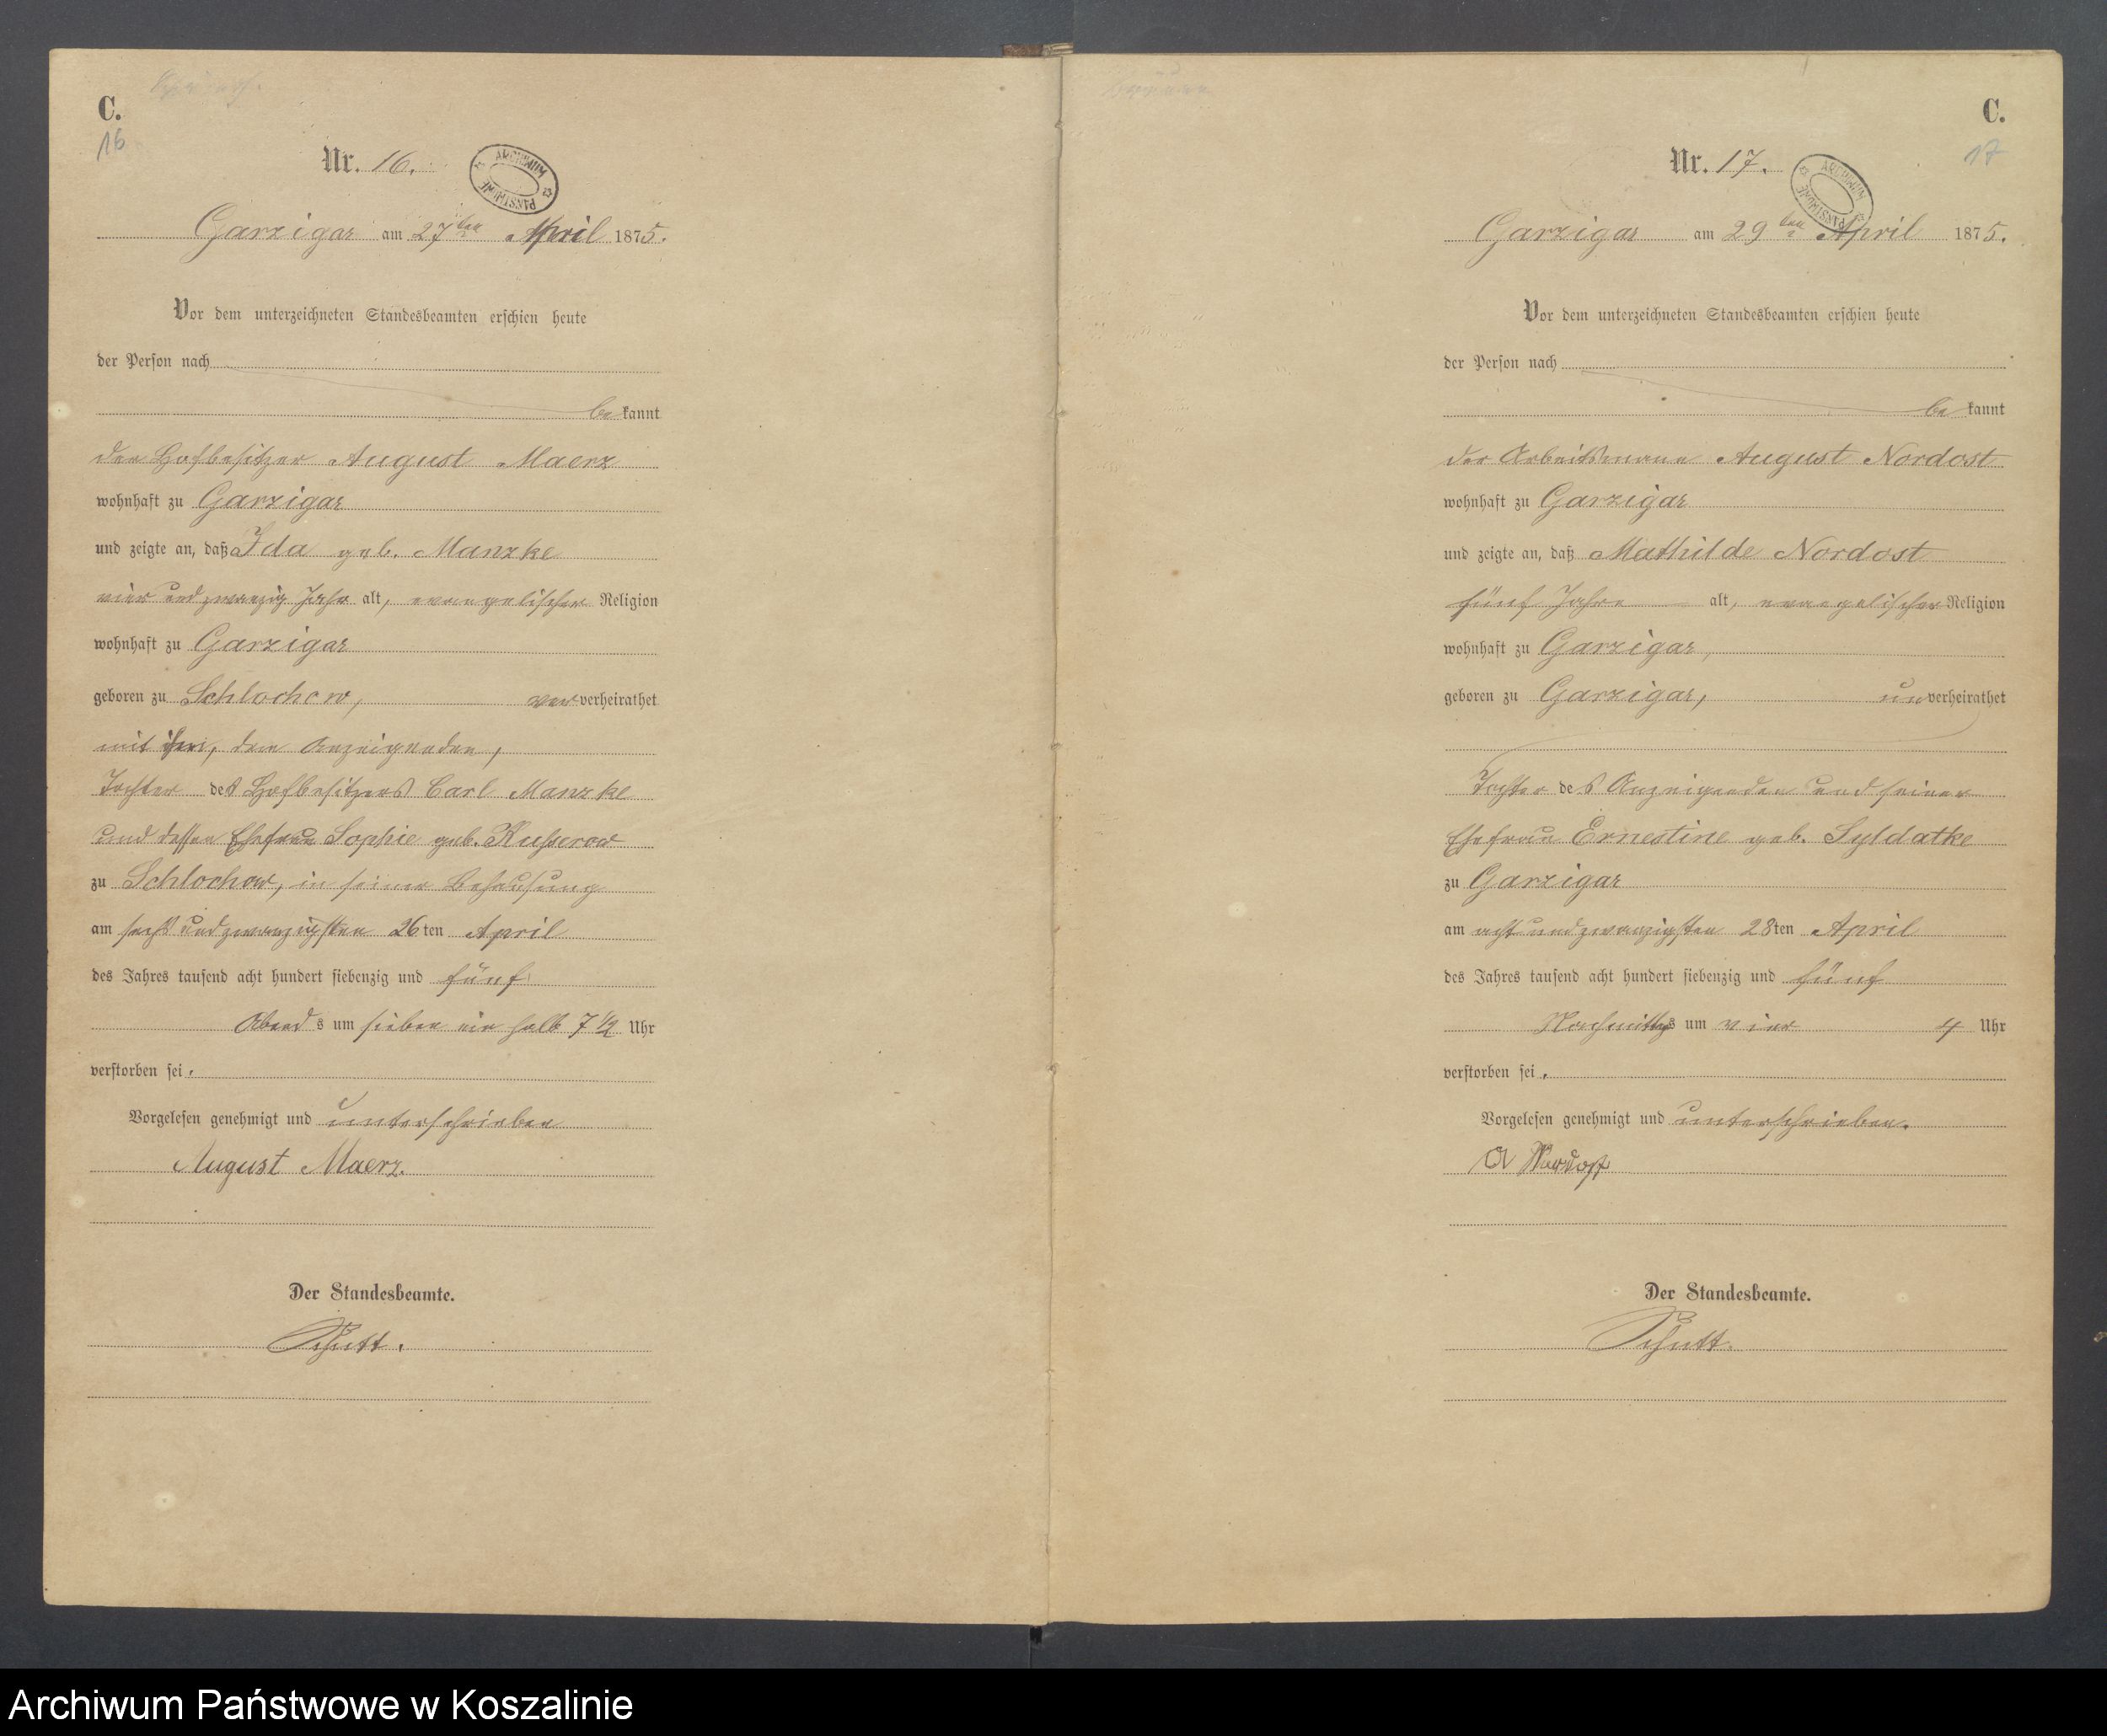 C.
16
Nr. 16.
ARCHIWUM PAŃSTWOWE
Garzigar am 27ten April 1875.
Vor dem unterzeichneten Standesbeamten erschien heute
der Person nach
be kannt
der Hofbesitzer August Maerz
wohnhaft zu Garzigar
und zeigte an, daß Ida geb. Manzke
vier und zwanzig Jahr alt, evangelischer Religion
wohnhaft zu Garzigar
geboren zu Schlochow, ver verheirathet
mit ihm, dem Anzeigenden,
Tochter des Hofbesitzers Carl Manzke
und dessen Ehefrau Sophie geb. Kusserow
zu Schlochow, in seiner Behausung
am sechs und zwanzigsten 26ten April
des Jahres tausend acht hundert siebenzig und fünf
Abends um sieben ein halb 7 1/2 Uhr
verstorben sei.
Vorgelesen genehmigt und unterschrieben
August Maerz.
Der Standesbeamte.
Schutt.
C.
17
Nr. 17.
ARCHIWUM PAŃSTWOWE
Garzigar am 29ten April 1875.
Vor dem unterzeichneten Standesbeamten erschien heute
der Person nach
be kannt
der Arbeitsmann August Nordost
wohnhaft zu Garzigar
und zeigte an, daß Mathilde Nordost
fünf Jahre alt, evangelischer Religion
wohnhaft zu Garzigar,
geboren zu Garzigar, unverheirathet
Tochter des Anzeigenden und seiner
Ehefrau Ernestine geb. Syldatke
zu Garzigar
am acht und zwanzigsten 28ten April
des Jahres tausend acht hundert siebenzig und fünf
Nachmittags um vier 4 Uhr
verstorben sei.
Vorgelesen genehmigt und unterschrieben.
A Nordost
Der Standesbeamte.
Schutt.
Archiwum Państwowe w Koszalinie